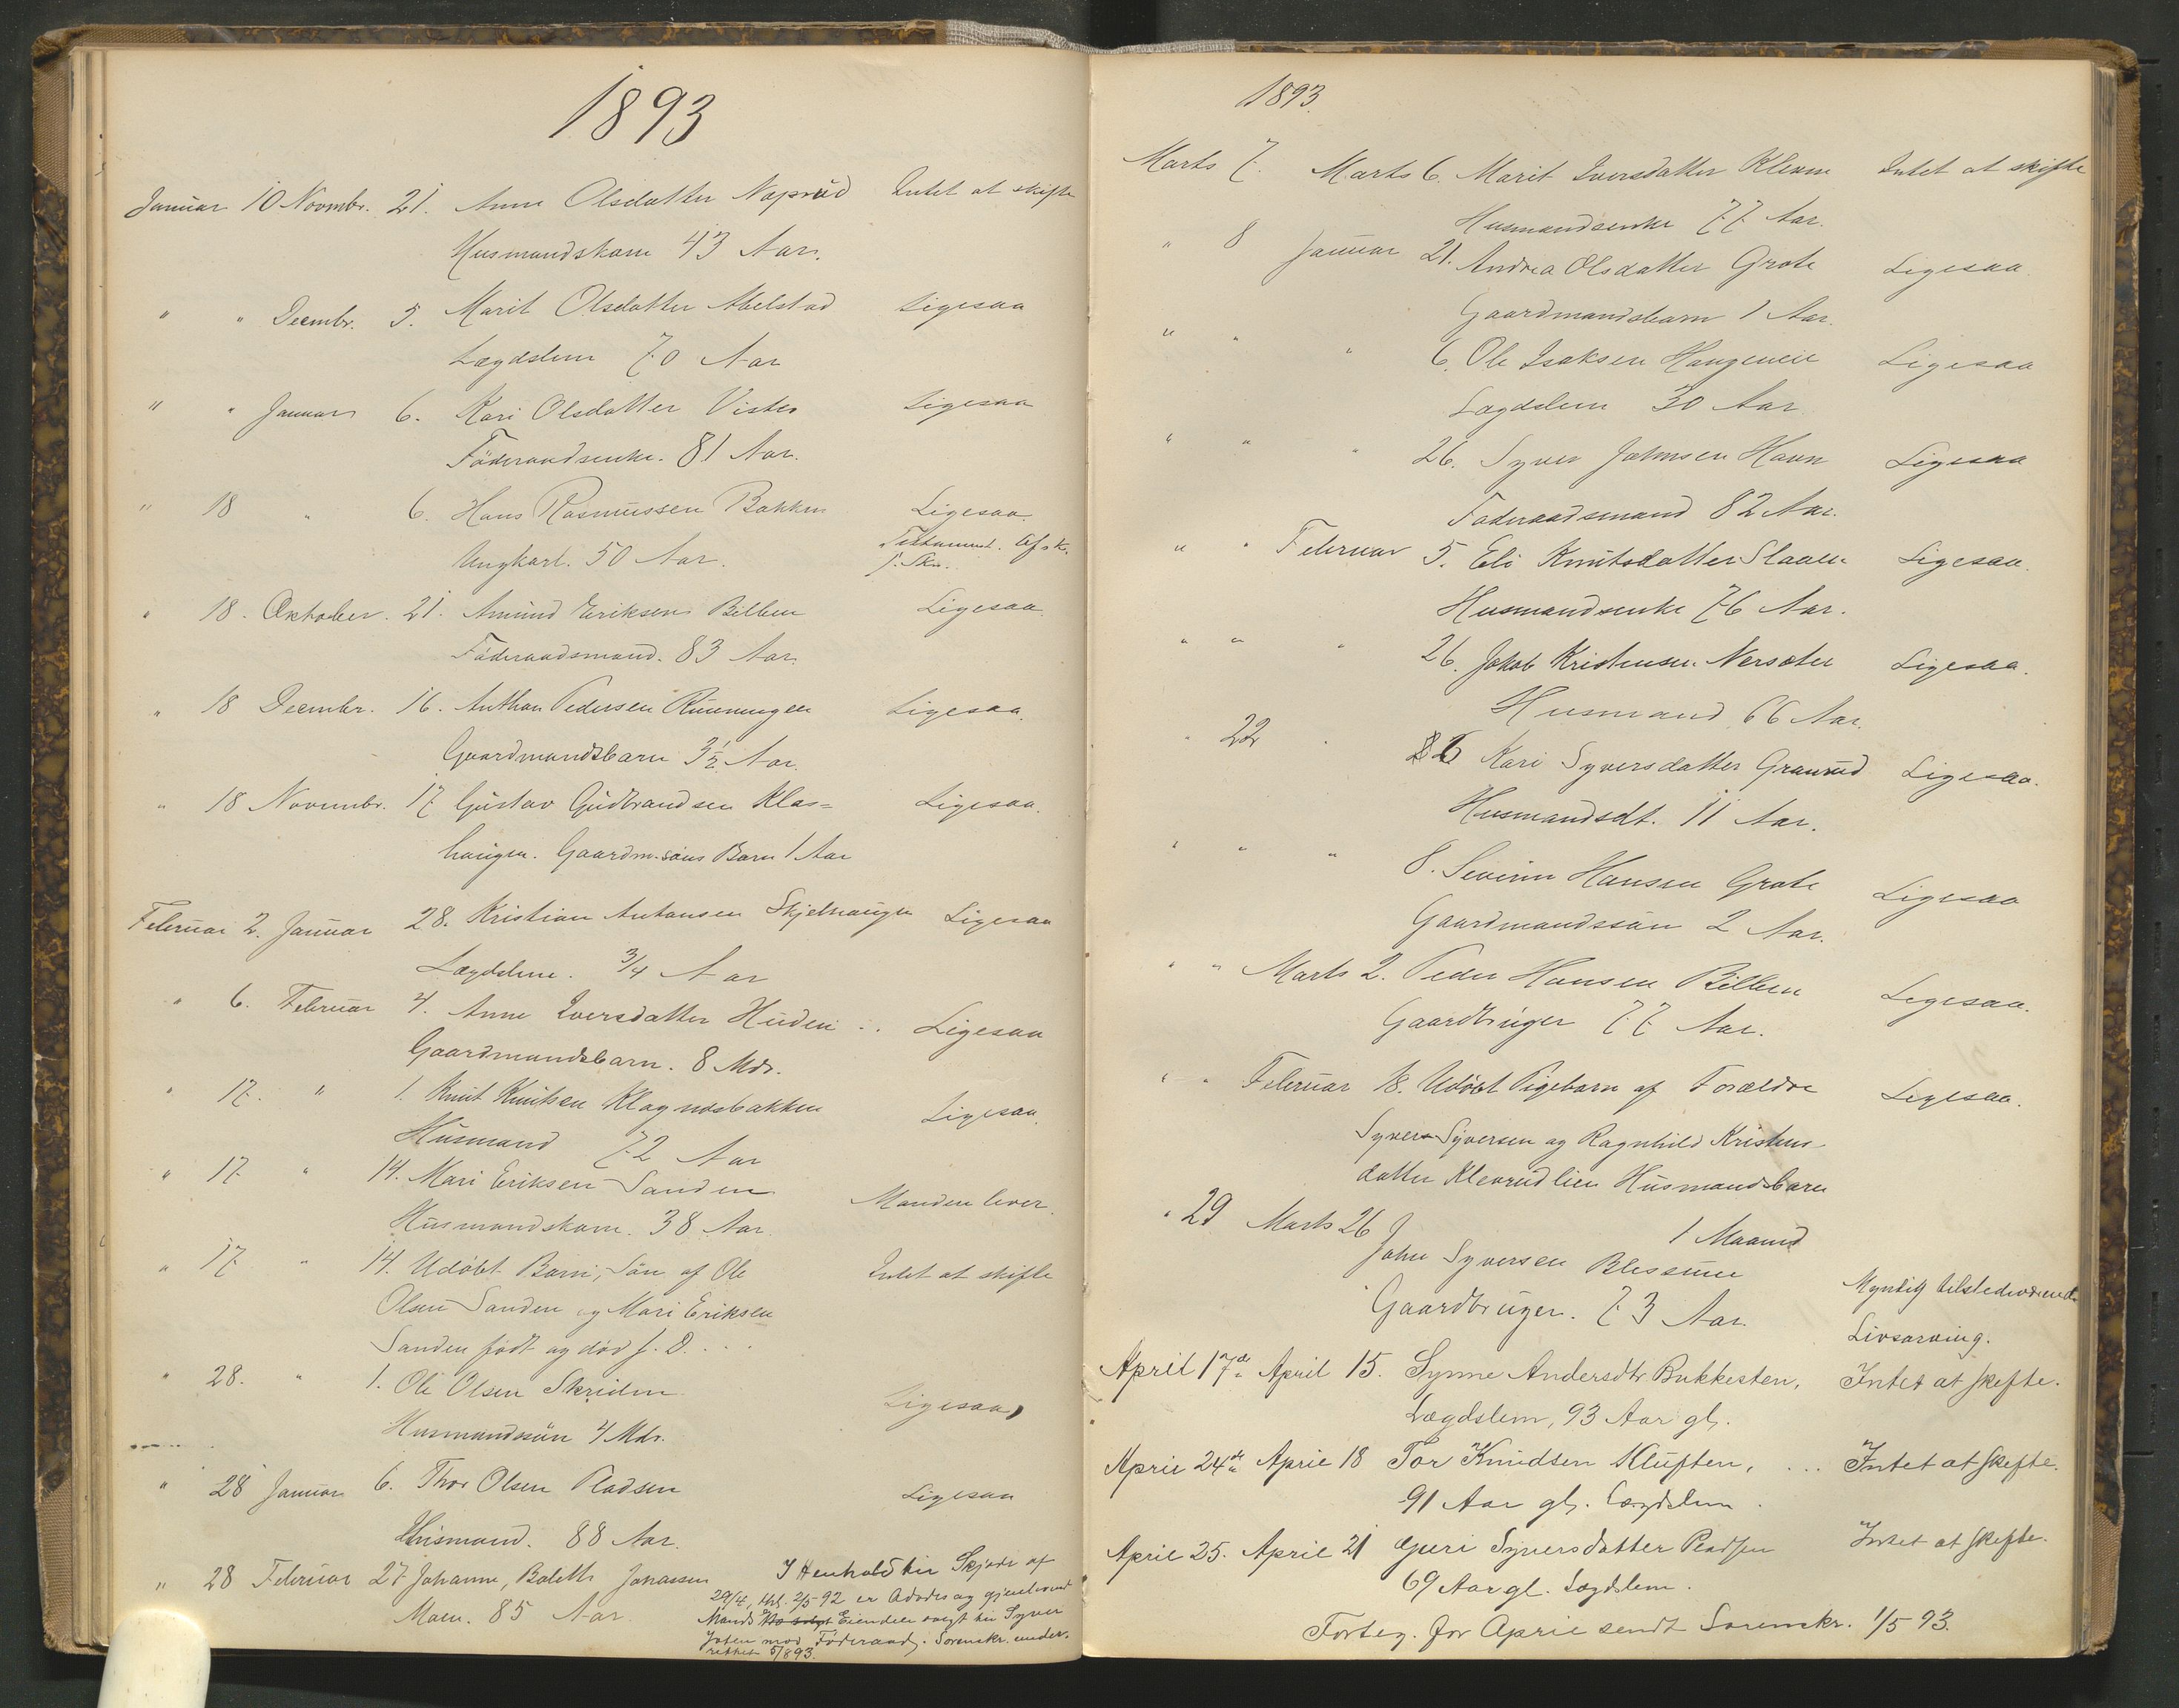 1893
Januar 10 Novmbr. 21. Anne Olsdatter Naprud Intet at skifte
Husmandskone 43 Aar.
" " Decmbr. 5. Marit Olsdatter Abelstad Ligesaa
Lægdslem 70 Aar
" " Januar 6. Kari Olsdatter Viste Ligesaa
Föderaadsenke. 81 Aar.
" 18 " 6. Hans Rasmussen Bakken Ligesaa.
Ungkarl. 50 Aar. Testament. Afsk.
" 18. Oktober. 21. Amund Eriksen Billben Ligesaa.
Föderaadsmand. 83 Aar.
" 18 Decmbr. 16. Anthon Pedersen Rünningen Ligesaa.
Gaardmandsbarn 3½ Aar.
" 18 Novembr. 17 Gustav Gudbrandsen Klas=
haugen. Gaardm.søns Barn 1 Aar Ligesaa.
Februar 2. Januar 28. Kristian Antonsen Skjelhaugen Ligesaa
Lægdslem. 3/4 Aar
" 6. Februar 4. Anne Iversdatter Huden .. Ligesaa
Gaardmandsbarn. 8 Mdr.
" 17. " 1. Knut Knutsen Klagndsbakken Ligesaa.
Husmand 72 Aar
" 17 " 14. Mari Eriksen Sanden Manden lever.
Husmandskone. 38 Aar.
" 17. " 14. Udöbt Barn, Sön af Ole Intet at skifte
Olsen Sanden og Mari Eriksen
Sanden født og död s. D. . . .
" 28. " 1. Ole Olsen Skriden Ligesaa
Husmandssön 4 Mdr.
" 28 Januar 6. Thor Olsen Pladsen Ligesaa
Husmand. 88 Aar.
" 28 Februar 27 Johanne, Baleth Jonassen
Moen. 85 Aar.
I Henhold til Skjøde af
29/4, thl. 2/5 92 er Afdødes og gjenlevend
Mands Eiendele solgt til Syver
Joten mod Föderaad. Sorenskr. under-
rettet 5/8 93.
1893.
Marts 7. Marts 6. Marit Iversdatter Klevne Intet at skifte
Husmandsenke 77 Aar.
" 8 Januar 21. Andrea Olsdatter Grote Ligesaa.
Gaardmandsbarn 1 Aar.
" " " 6. Ole Isaksen Haugeneie Ligesaa
Lægdslem 30 Aar
" " " 26. Syver Johnsen Havn Ligesaa
Föderaadsmand 82 Aar.
" " Februar 5. Eli Knutsdatter Slaaen Ligesaa.
Husmandsenke 76 Aar.
" " " 26. Jakob Kristensen Nersæter Ligesaa.
Husmand 66 Aar.
" 22 " 26 Kari Syversdatter Granrud Ligesaa.
Husmandsdt. 11 Aar.
" " " 8. Severin Hansen Grote Ligesaa
Gaardmandssön 2 Aar.
" " Marts 2. Peder Hansen Billben Ligesaa.
Gaardbruger 77 Aar.
" " Februar 18. Udöbt Pigebarn af Forældre Ligesaa.
Syver Syversen og Ragnhild Kristens-
datter Klevrudlien Husmandsbarn
1 Maaned
" 29 Marts 26 John Syversen Blessum Myndig tilstedeværende
Gaardbruger. 73 Aar. Livsarving.
April 17de April 15. Synne Andersdtr. Bukkesten, Intet at skifte.
Lægdslem, 93 Aar gl.
April 24de April 18 Tor Knudsen Kluften, . . . Intet at skifte.
91 Aar gl. Lægdslem.
April 25. April 21 Guri Syversdatter Pladsen Intet at skifte.
69 Aar gl. Lægdslem.
Forteg. for April sendt Sorenskr. 1/5 93.